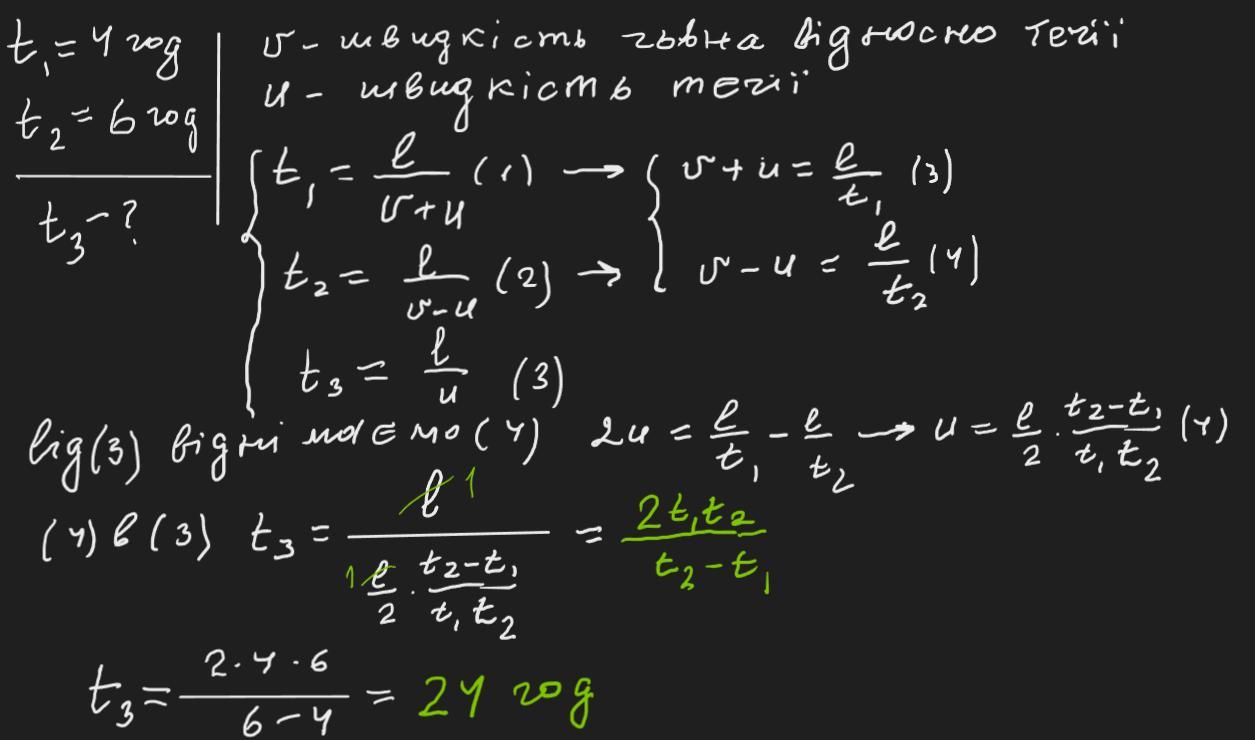 t₁ = 4 год
t₂ = 6 год
t₃ - ?
v - швидкість човна відносно течії
u - швидкість течії
t₁ = l/(v+u) (1) → v + u = l/t₁ (3)
t₂ = l/(v-u) (2) → v - u = l/t₂ (4)
t₃ = l/u (3)
Від (3) віднімаємо (4) 2u = l/t₁ - l/t₂ → u = l/2 · (t₂-t₁)/(t₁t₂) (4)
(4) в (3) t₃ = l 1/(1 l/2 · (t₂-t₁)/(t₁t₂)) = 2t₁t₂/(t₂-t₁)
t₃ = (2·4·6)/(6-4) = 24 год